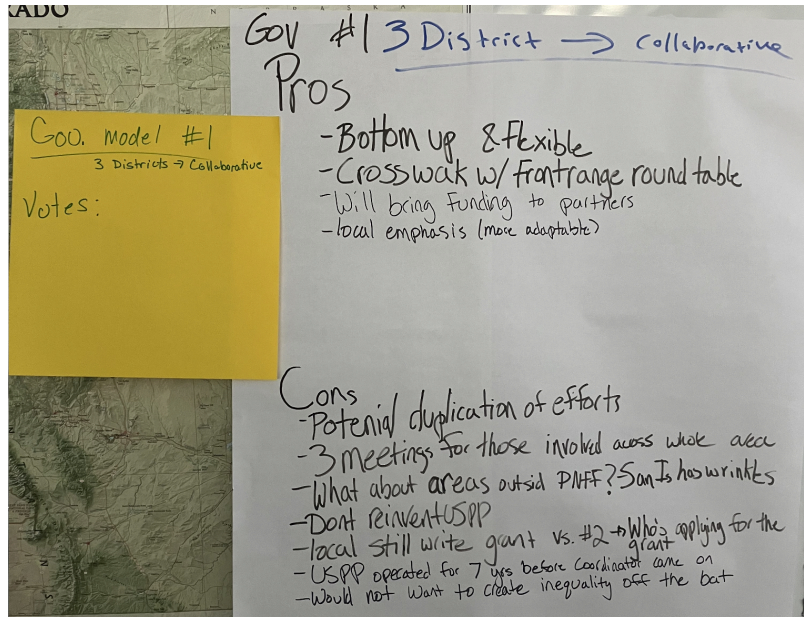 RADO
Gov #1 3 District → Collaborative
Pros
- Bottom up & flexible
- Crosswak w/ Frontrange round table
- Will bring Funding to partners
- local emphasis (more adaptable)
Goo. model #1
3 Districts → Collaborative
Votes:
Cons
- Potenial duplication of efforts
- 3 meetings for those involved across whole area
- What about areas outsid PNFF? San Is has wrinkles
- Dont reinvent USPP
- local still write grant vs. #2 → Who's applying for the
grant
- USPP operated for 7 yrs before Coordinator came on
- Would not want to create inequality off the bat